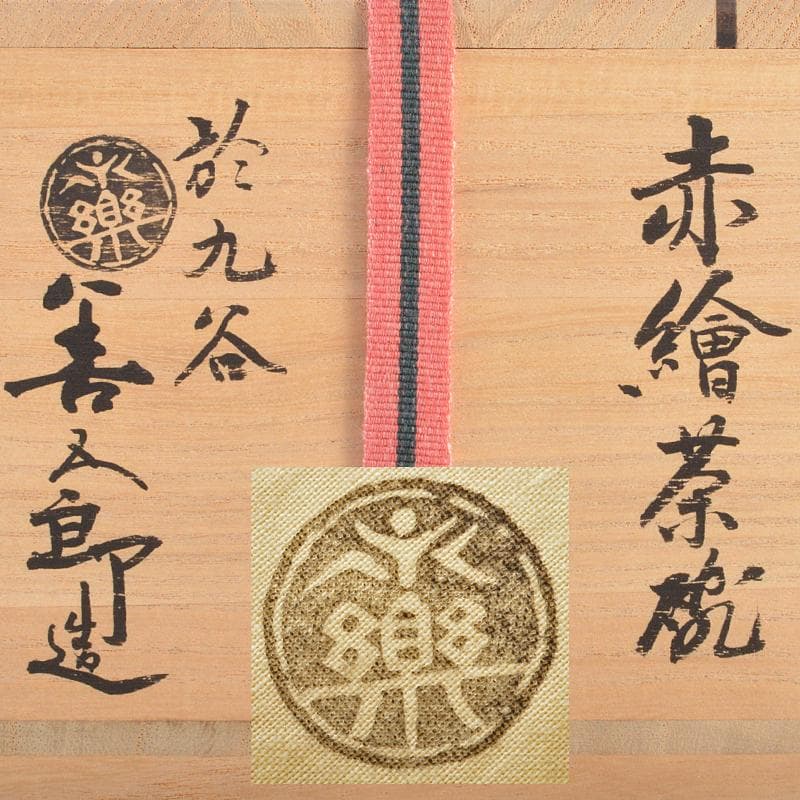 赤繪茶碗
於九谷
永樂
善五郎造
永樂